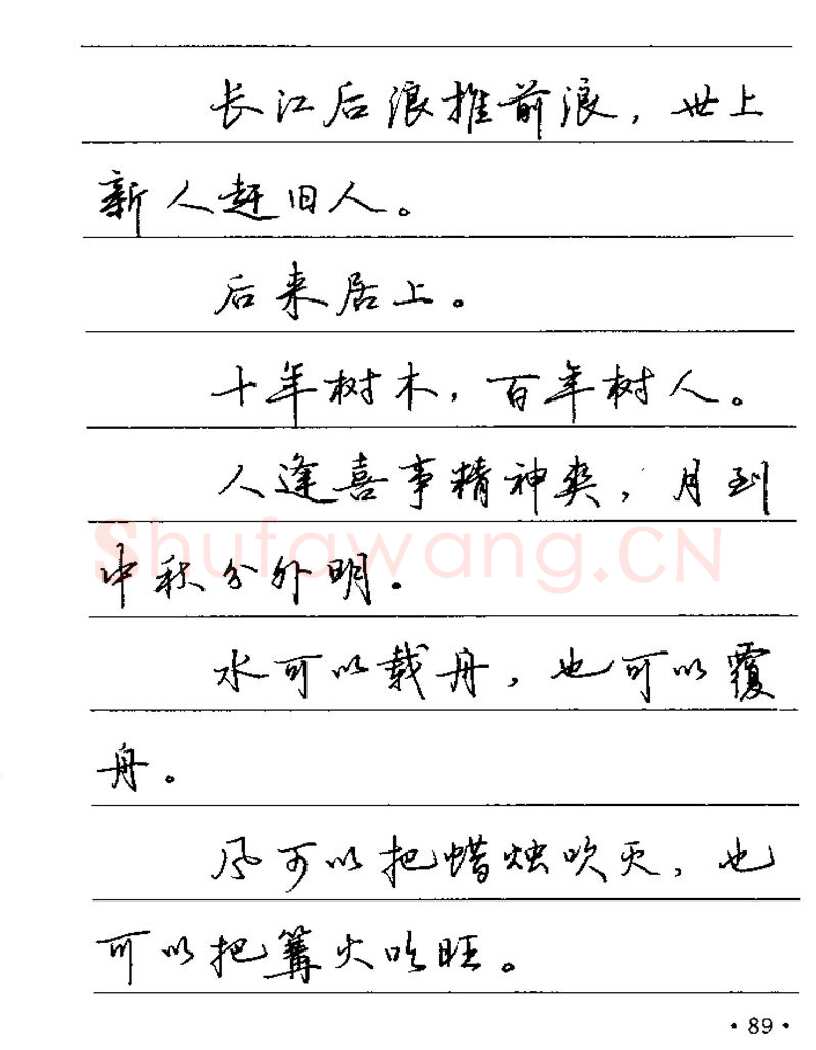 长江后浪推前浪，世上
新人赶旧人。
后来居上。
十年树木，百年树人。
人逢喜事精神爽，月到
中秋分外明。
Shufawang.CN
水可以载舟，也可以覆
舟。
风可以把蜡烛吹灭，也
可以把篝火吹旺。
·89·